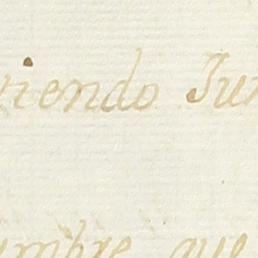 viendo Jun
umbre que